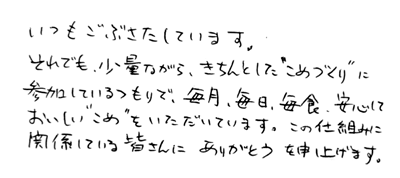 いつもごぶさたしています。
それでも、少量ながら、きちんとした"こめづくり"に
参加しているつもりで、毎月、毎日、毎食、安心して
おいしい"こめ"をいただいています。この仕組みに
関係している皆さんに ありがとう を申上げます。